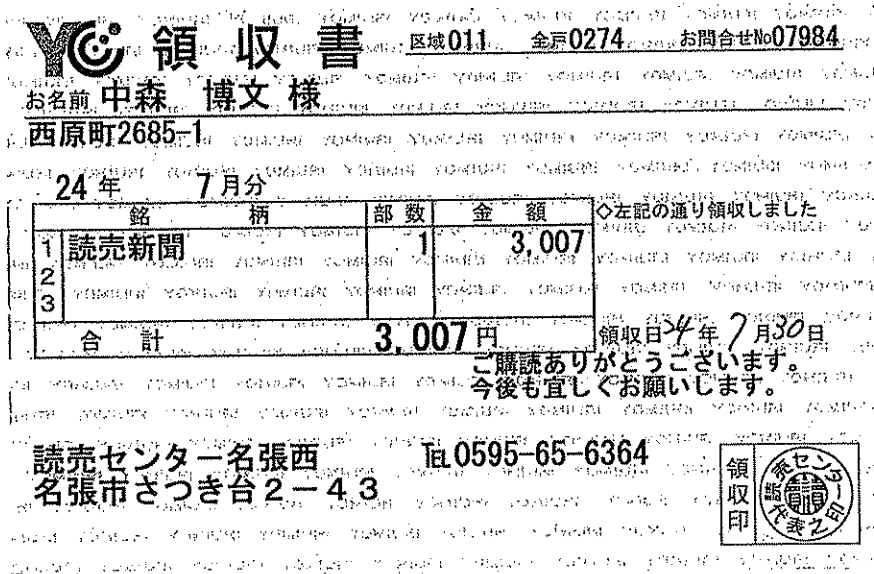 YC 領収書 区域011 全戸0274 お問合せNo07984
お名前 中森 博文 様
西原町2685-1
24年 7月分
銘柄 部数 金額 ◇左記の通り領収しました
1 読売新聞 1 3,007
2
3
合計 3,007円 領収日24年7月30日
ご購読ありがとうございます。
今後も宜しくお願いします。
読売センター名張西 TEL0595-65-6364
名張市さつき台2-43
領収印 読売センター代表之印